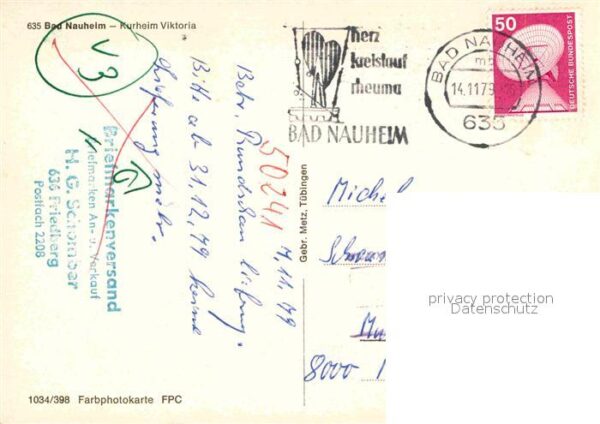 635 Bad Nauheim — Kurheim Viktoria
V 3
herz
kreislauf
rheuma
BAD NAUHEIM
BAD NAUHEIM
14.11.79
635
50
DEUTSCHE BUNDESPOST
50241
7.11.79
Betr. Rundschau
Bitte ab 31.12.79 keine
Lieferung mehr.
Briefmarkenversand
Briefmarken An- u. Verkauf
H. G. Schomber
636 Friedberg
Postfach 2208
Gebr. Metz, Tübingen
Michel
8000
privacy protection
Datenschutz
1034/398 Farbphotokarte FPC